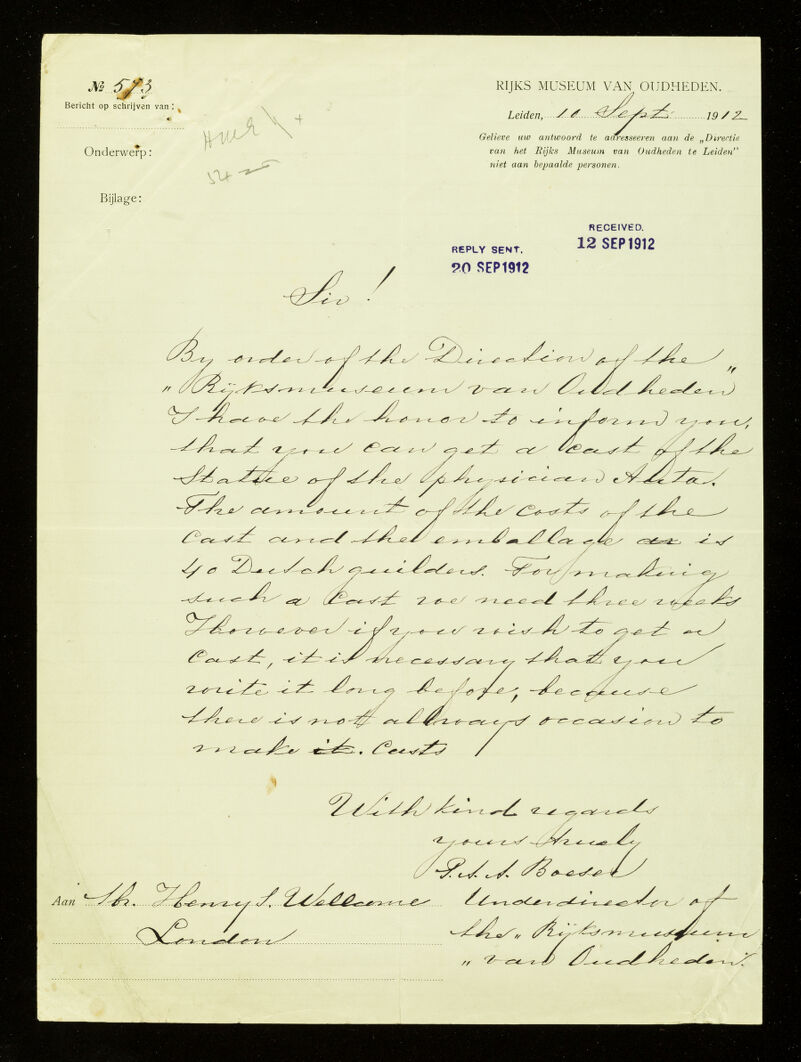 № 573
Bericht op schrijven van:
Onderwerp:
Bijlage:
54
RIJKS MUSEUM VAN OUDHEDEN.
Leiden, 10 Sept 1912
Gelieve uw antwoord te adresseeren aan de „Directie
van het Rijks Museum van Oudheden te Leiden”
niet aan bepaalde personen.
RECEIVED.
12 SEP 1912
REPLY SENT.
20 SEP 1912
Sir!
By order of the Direction of the
„Rijksmuseum van Oudheden”
I have the honor to inform you,
that you can get a cast of the
Statue of the physician Auta.
The amount of the costs of the
cast and the emballage is
40 Dutch guilders. For making
such a cast we need three weeks
However if you wish to get a
cast, it is necessary that you
write it long before, because
there is not allways occasion to
make it. casts
With kind regards
yours truely
P.A.A. Boeser
Underdirector of
the „Rijksmuseum
„van Oudheden”.
Aan Mr. Henry S. Wellcome
London